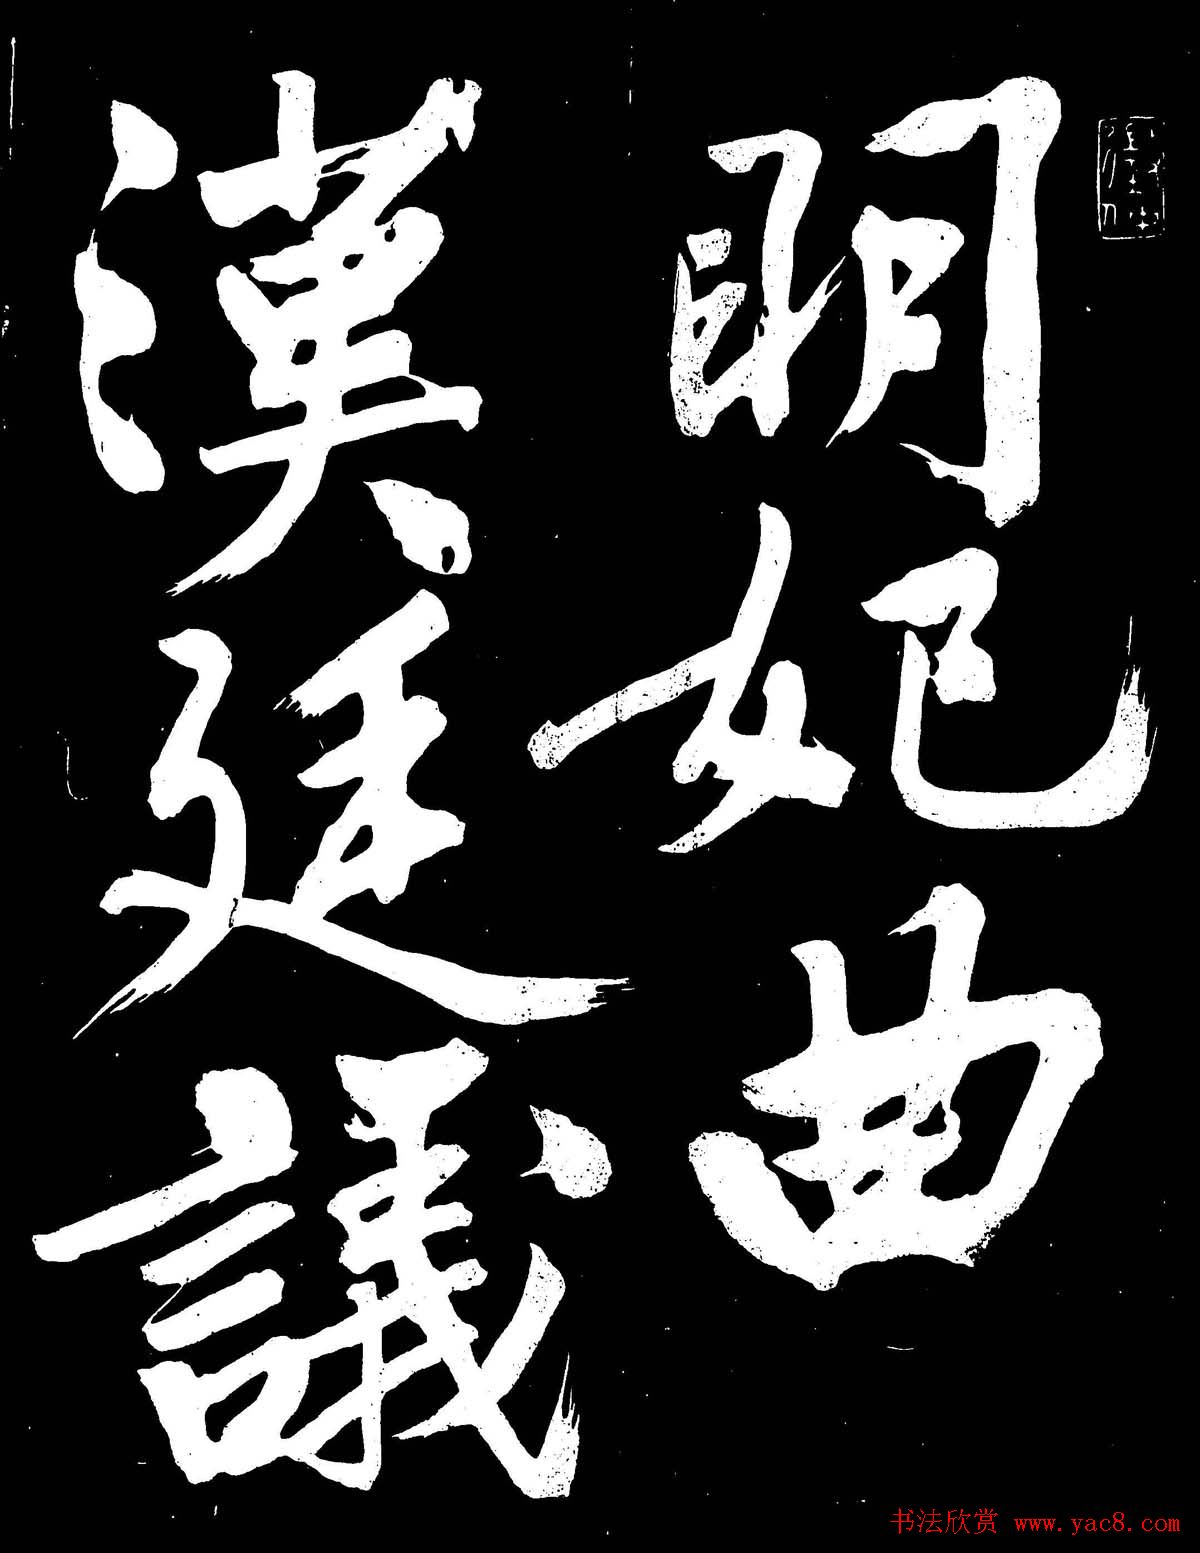 明妃曲
漢廷議
书法欣赏 www.yac8.com